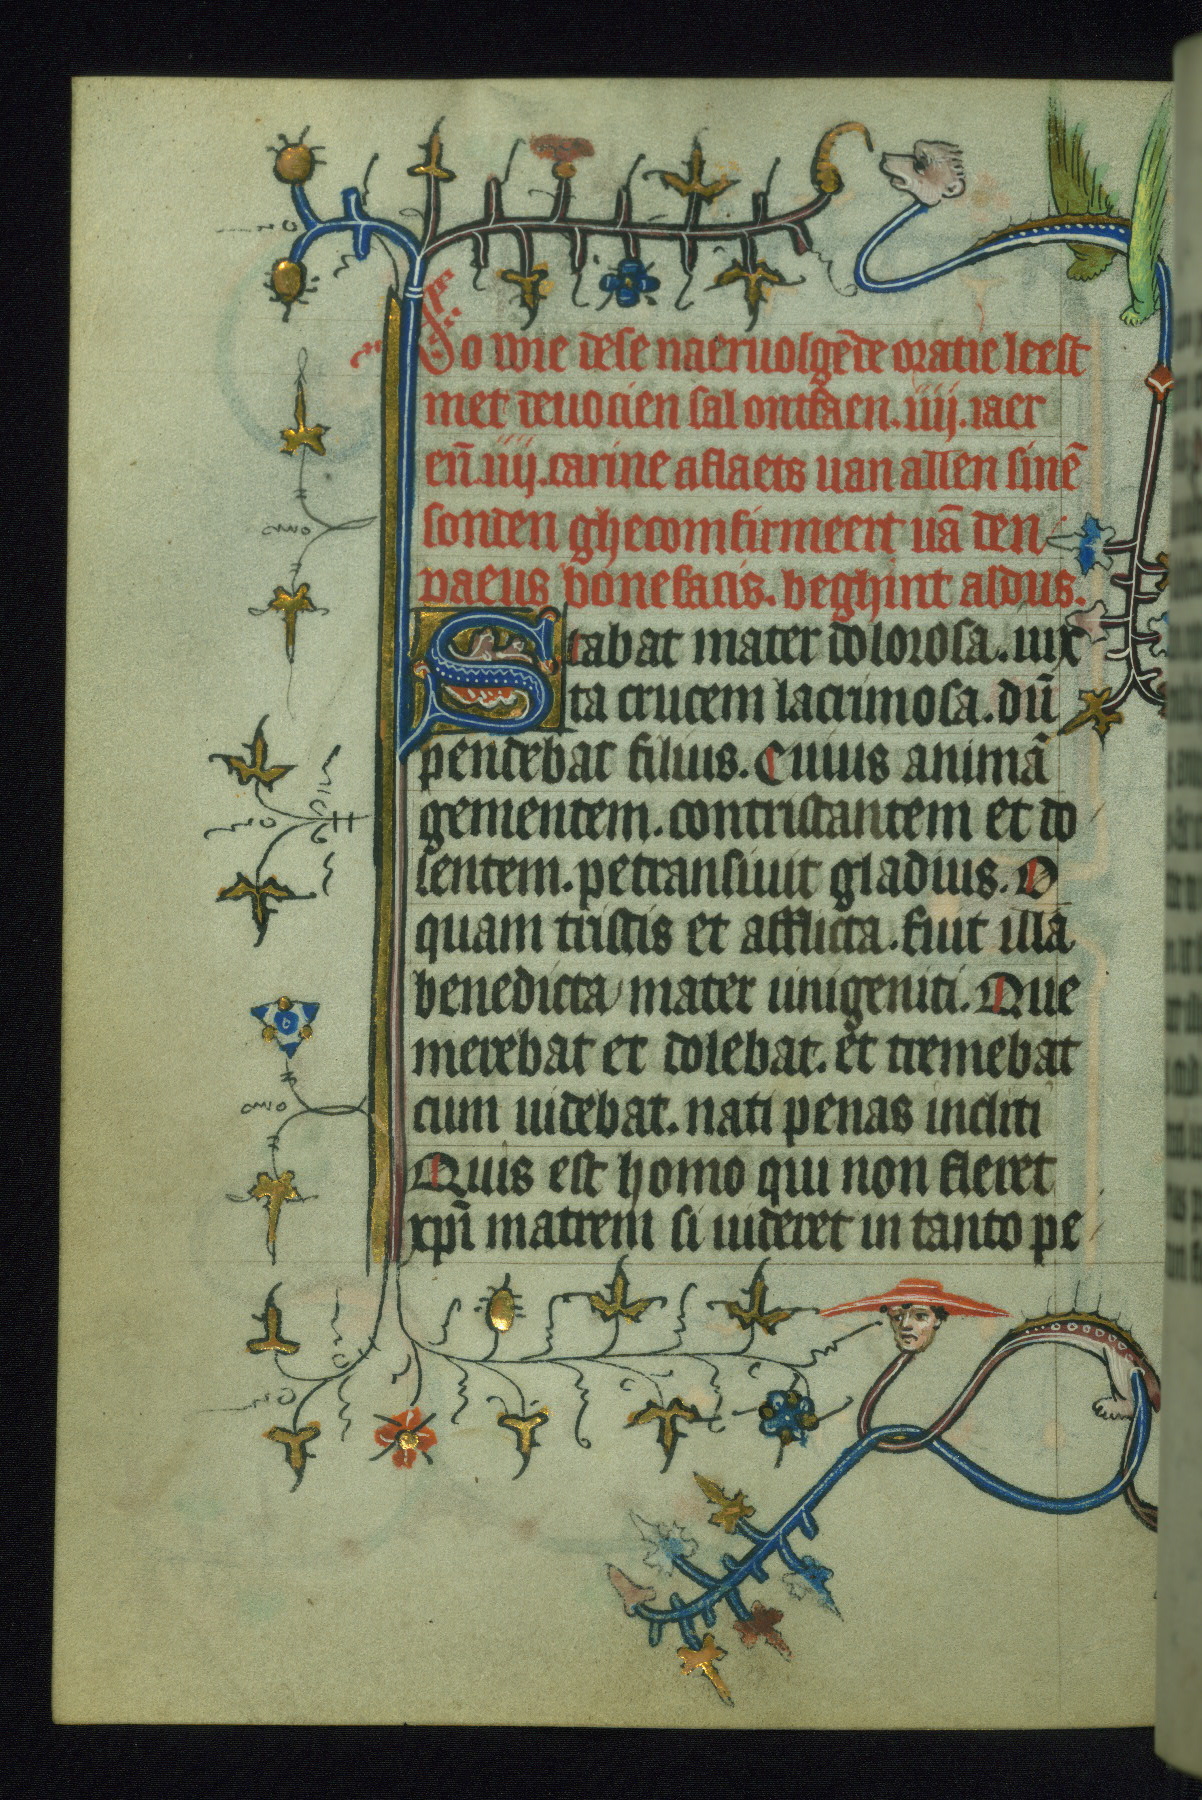 So wie dese naeruolgēde oratie leest
met deuocien sal ontfaen. iiij. iaer
eñ. iiij. carine aflaets uan allen sinē
sonden ghecomfirmeert uā den
paeus bonefacis. beghint aldus.
Stabat mater dolorosa. iux
ta crucem lacrimosa. dū
pendebat filius. Cuius animā
gementem. contristantem et do
lentem. petransiuit gladius. O
quam tristis et afflicta. fuit illa
benedicta mater unigeniti. Que
merebat et dolebat. et tremebat
cum uidebat. nati penas incliti
Quis est homo qui non fleret
xp̄i matrem si uideret in tanto pe